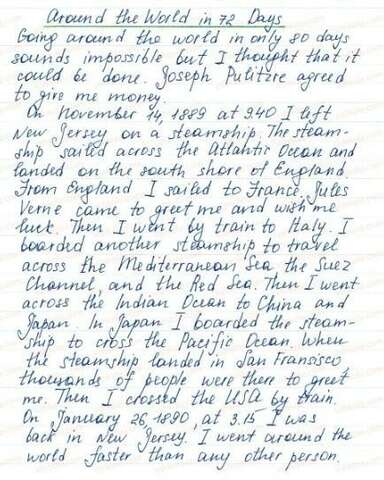 Around the World in 72 Days
Going around the world in only 80 days
sounds impossible but I thought that it
could be done. Joseph Pulitzre agreed
to give me money.
On November 14, 1889 at 9.40 I left
New Jersey on a steamship. The steam-
ship sailed across the Atlantic Ocean and
landed on the south shore of England.
From England I sailed to France. Jules
Verne came to greet me and wish me
luck. Then I went by train to Italy. I
boarded another steamship to travel
across the Mediterranean Sea, the Suez
Channel, and the Red Sea. Then I went
across the Indian Ocean to China and
Japan. In Japan I boarded the steam-
ship to cross the Pacific Ocean. When
the steamship landed in San Fransisco
thousands of people were there to greet
me. Then I crossed the USA by train.
On January 26, 1890, at 3.15 I was
back in New Jersey. I went around the
world faster than any other person.